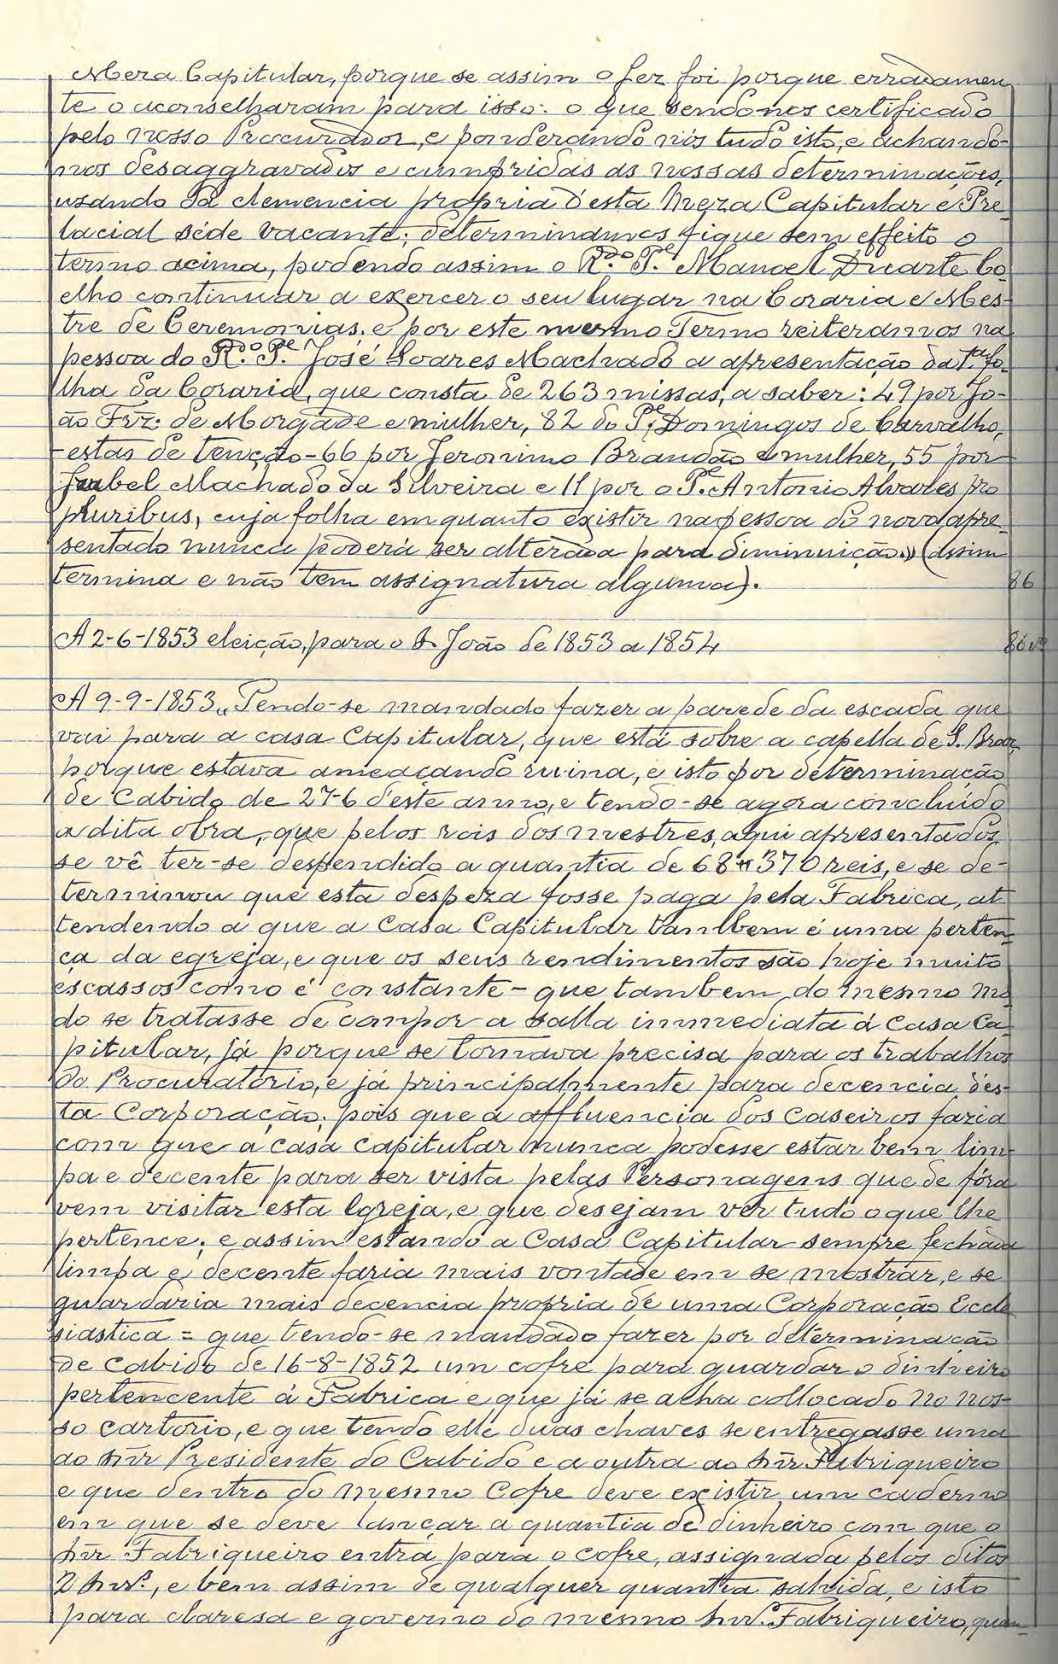 Meza Capitular, porque se assim o fez foi porque erradamen
te o aconselharam para isso: o que sendo-nos certificado
pelo nosso Procurador, e ponderando nós tudo isto, e achando-
nos desaggravados e cumpridas as nossas determinações,
usando da clemencia propria d'esta Meza Capitular e Pre
lacial séde vacante; determinamos fique sem effeito o
termo acima, podendo assim o R.do P.e Manoel Duarte Co
elho continuar a exercer o seu lugar na Coraria e Mes-
tre de Ceremonias, e por este mesmo Termo reiteramos na
pessoa do R.o P.e José Soares Machado a apresentação da 1.ª fo
lha da Coraria, que consta de 263 missas, a saber: 49 por Jo-
ão Frz. de Morgade e mulher, 82 do P.e Domingos de Carvalho,
estas de tenção - 66 por Jeronimo Brandão e mulher, 55 por
Izabel Machado da Silveira e 11 por o P.e Antonio Alvares pro
pluribus, cuja folha emquanto existir na pessoa do novo apre
sentado nunca poderá ser alterada para diminuição.» (assim
termina e não tem assignatura alguma).
86
A 2-6-1853 eleição, para o S. João de 1853 a 1854
86 vº
A 9-9-1853 „Tendo-se mandado fazer a parede da escada que
vai para a casa Capitular, que está sobre a capella de S. Braz,
porque estava ameaçando ruina, e isto por determinação
de Cabido de 27-6 d'este anno, e tendo-se agora concluido
a dita obra, que pelos rois dos mestres, aqui apresentados,
se vê ter-se despendido a quantia de 68#370 reis, e se de-
terminou que esta despeza fosse paga pela Fabrica, at
tendendo a que a Casa Capitular tambem é uma perten-
ça da egreja, e que os seus rendimentos são hoje muito
escassos como é constante - que tambem do mesmo mo
do se tratasse de compor a salla immediata á Casa Ca
pitular, já porque se tornava precisa para os trabalhos
do Procuratorio, e já principalmente para decencia des-
ta Corporação; pois que a affluencia dos caseiros faria
com que a casa capitular nunca podesse estar bem lim-
pa e decente para ser vista pelas Personagens que de fóra
vem visitar esta Igreja, e que desejam ver tudo o que lhe
pertence; e assim estando a Casa Capitular sempre fechada
limpa e decente faria mais vontade em se mostrar, e se
guardaria mais decencia propria de uma Corporação Eccle
siastica = que tendo-se mandado fazer por determinação
de cabido de 16-8-1852 um cofre para guardar o dinheiro
pertencente á Fabrica e que já se acha collocado no nos-
so cartorio, e que tendo elle duas chaves se entregasse uma
ao Snr Presidente do Cabido e a outra ao Snr Fabriqueiro
e que dentro do mesmo Cofre deve existir um caderno
em que se deve lançar a quantia de dinheiro com que o
Snr Fabriqueiro entra para o cofre, assignada pelos ditos
2 Snrs., e bem assim de qualquer quantia sahida, e isto
para claresa e governo do mesmo Snr. Fabriqueiro, quan-